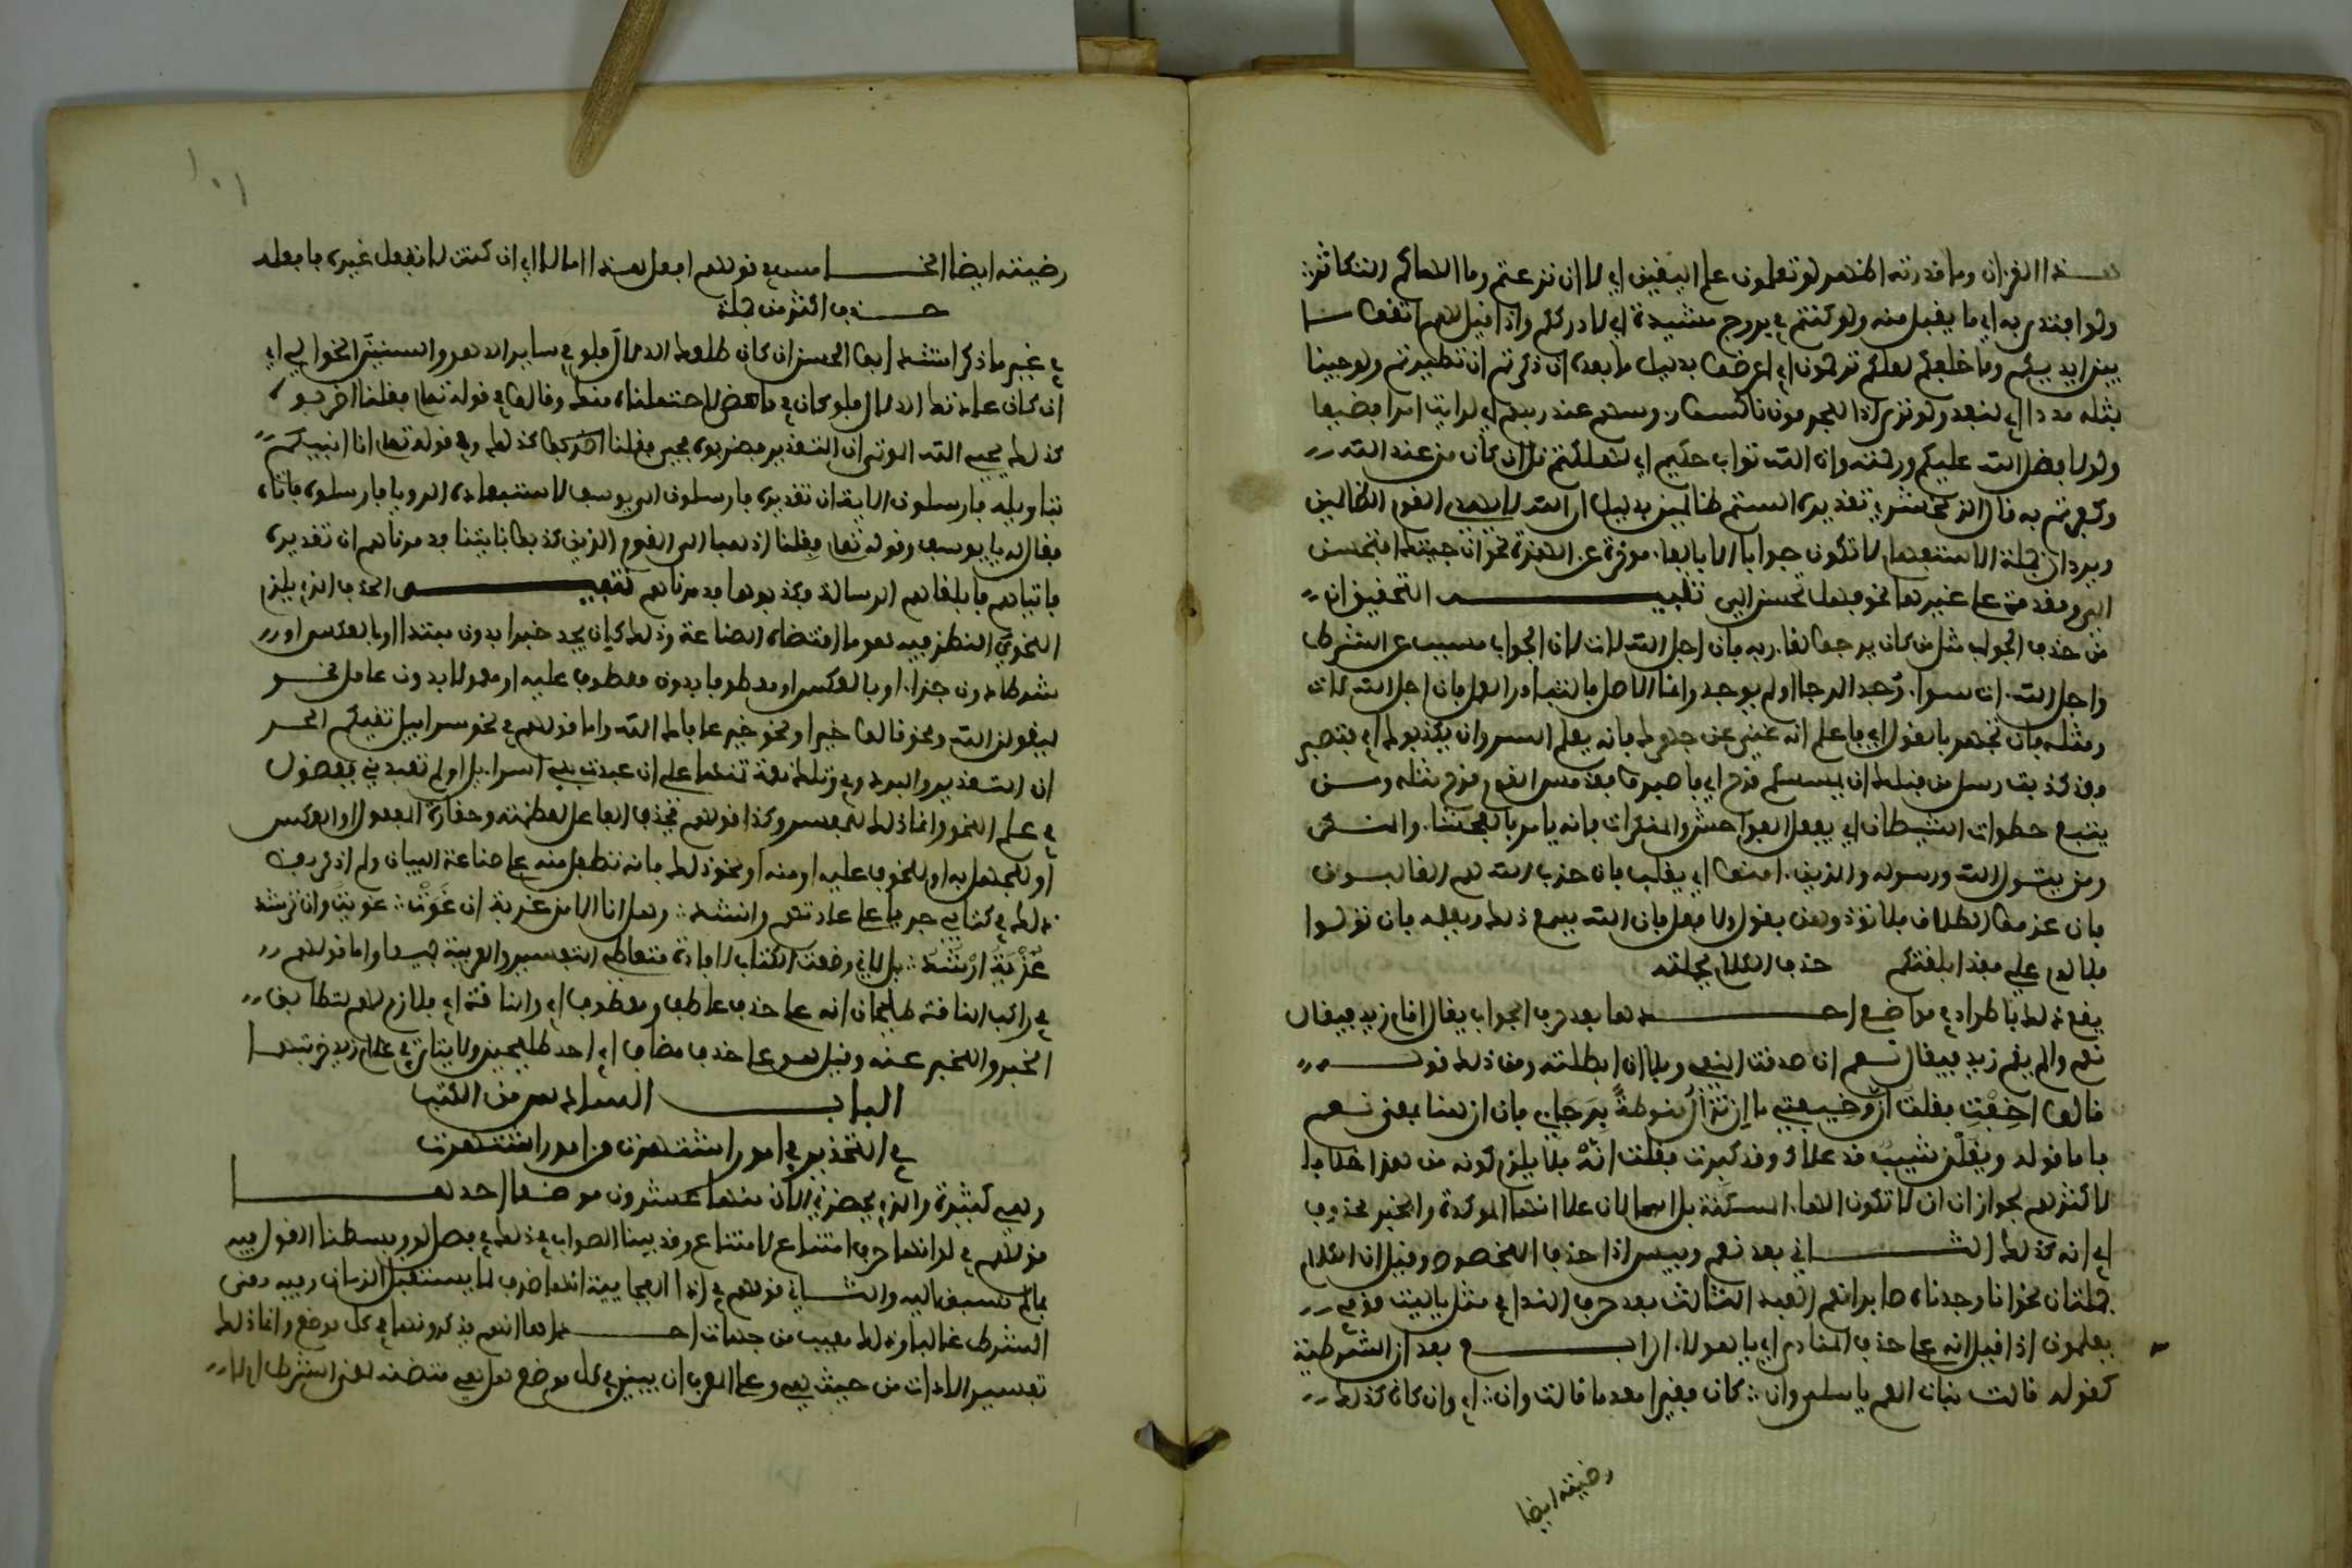 هذا القرءان وما قدرته اظهر لو تعلمون علم اليقين اي لا ان نزعتم وما الهاكم التكاثر
ولو افتدى به اي ما يقبل منه ولو كنتم في بروج مشيدة اي لادرككم واذا قيل لهم اتقوا ما
بين ايديكم وما خلفكم لعلكم ترحمون اي اعرضوا بدليل ما بعده اين ذكرتم اي تطيرتم ولو جينا
بمثله مددا اي لنفد ولو ترى اذ المجرمون ناكسوا رءوسهم عند ربهم اي لرايت امرا فضيعا
ولولا فضل الله عليكم ورحمته وان الله تواب حكيم اي لهلكتم قل ارايتم ان كان من عند الله
وكفرتم به قال الزمخشري تقديره الستم ظالمين بدليل ان الله لا يهدي القوم الظالمين
ويرد ان جملة الاستفهام لا تكون جوابا الا بالفاء موخرة عن الهمزة نحو ان جيتك افتحسن
الي ومقدمة على غيرها نحو فهل تحسن الي تنبيه التحقيق ان
من حذف الجواب مثل من كان يرجوا لقاء ربه فان اجل الله لات لان الجواب مسبب عن الشرط
واجل الله ءات سواء وجد الرجا او لم يوجد وانما الاصل فليبادر العمل فان اجل الله لات
ومثله وان تجهر بالقول اي فاعلم انه غني عن جهرك فانه يعلم السر وان يكذبوك اي فتصبر
وقد كذبت رسل من قبلك ان يمسسكم قرح اي فاصبروا فقد مس القوم قرح مثله ومن
يتبع خطوات الشيطان اي يفعل الفواحش والمنكرات فانه يامر بالفحشاء والمنكر
ومن يتول الله ورسوله والذين ءامنوا اي يغلب فان حزب الله هم الغالبون
وان عزموا الطلاق فلا تؤذوهن بقول ولا فعل فان الله يسمع ذلك ويعلمه فان تولوا
فلا لوم علي فقد ابلغتكم حذف الكلام بجملته
يقع ذلك باطراد في مواضع احدها بعد حرف الجواب يقال اقام زيد فيقال
نعم والم يقم زيد فيقال نعم ان صدقت النفي وبلى ان ابطلته ومن ذلك قوله
قالوا اخفت فقلت ان وخيفتي ما ان تزال منوطة برجاءي فان ان هنا بمعنى نعم
واما قوله ويقلن شيب قد علاك وقد كبرت فقلت انه فلا يلزم كونه من هذا خلافا
لاكثرهم لجواز ان لا تكون الهاء للسكت بل اسما لان على انها الموكدة والخبر محذوف
اي انه كذلك الثاني بعد نعم وبيس اذا حذف المخصوص وقيل ان الكلام
جملتان نحو انا وجدناه صابرا نعم العبد الثالث بعد حرف النداء في مثل يا ليت قومي
يعلمون اذا قيل انه على حذف المنادى اي يا هولاء الرابع بعد ان الشرطية
كقوله قالت بنات العم يا سلمى وان كان فقيرا معدما قالت وان اي وان كان كذلك
رضيته ايضا
١٠١
رضيته ايضا الخامس في قولهم افعل هذا اما لا اي ان كنت لا تفعل غيره فافعله
حذف اكثر من جملة
في غير ما ذكر انشد ابو الحسن ان كان طبك الدلال فلو في سالف الدهر والسنين الخوالي اي
ان كان عادتك الدلال فلو كان في ما مضى لاحتملناه منك وقالوا في قوله تعلى فقلنا اضربوه
كذلك يحيي الله الموتى ان التقدير فضربوه فحيي فقلنا كذلك وفي قوله تعلى انا انبيكم
بتاويله فارسلون الاية ان تقديره فارسلون الى يوسف لاستعبره الرويا فارسلوه فاتاه
فقال له يا يوسف وقوله تعلى فقلنا اذهبا الى القوم الذين كذبوا باياتنا فدمرناهم ان تقديره
فاتياهم فابلغاهم الرسالة فكذبوهما فدمرناهم تنبيه الحذف الذي يلزم
النحوي النظر فيه هو ما اقتضاه الصناعة وذلك كان يجد خبرا بدون مبتدا او بالعكس او
شرطا دون جزاء او بالعكس او معطوفا بدون معطوف عليه او معمولا بدون عامل نحو
ليقولن الله ونحو قالوا خيرا ونحو خير عافاك الله واما قولهم في نحو سرابيل تقيكم الحر
ان التقدير والبرد وفي وتلك نعمة تمنها علي ان عبدت بني اسراءيل او لم تعبدني ففضول
في علم النحو وانما ذلك للمفسر وكذا قولهم بحذف الفاعل لعظمته وحقارة المفعول او العكس
او للجهل به او للخوف عليه او منه او نحو ذلك فانه تطفل منه على صناعة البيان ولم اذكر بعض
ذلك في كتابي جريا على عادتهم وانشد وهل انا الا من غزية ان غوت غويت وان ترشد
غزية ارشد بل لاني وضعت الكتاب لافادة متعاطي التفسير والعربية جميعا واما قولهم
في راكب الناقة طليحان انه على حذف عاطف ومعطوف اي والناقة اي فلازم لهم ليطابق
الخبر والمخبر عنه وقيل هو على حذف مضاف اي احد طليحين ولا يتاتى في غلام زيد ضربتهما
الباب السادس من الكتاب
في التحذير في امور اشتهرت من امور اشتهرت
وهي كثيرة والذي يحضرني الان منها عشرون موضعا احدها
قولهم في لو انها حرف امتناع لامتناع وقد بينا الصواب في ذلك في فصل لو وبسطنا القول فيه
بما لم نسبق اليه والثاني قولهم في اذا الفجايية انها ظرف لما يستقبل الزمان وفيه معنى
الشرط غالبا وذلك معيب من جهات احدها انهم يذكرونها في كل موضع وانما ذلك
تفسير الاداة من حيث هي وعلى المعرب ان يبين في كل موضع هل هي متضمنة لمعنى الشرط ام لا